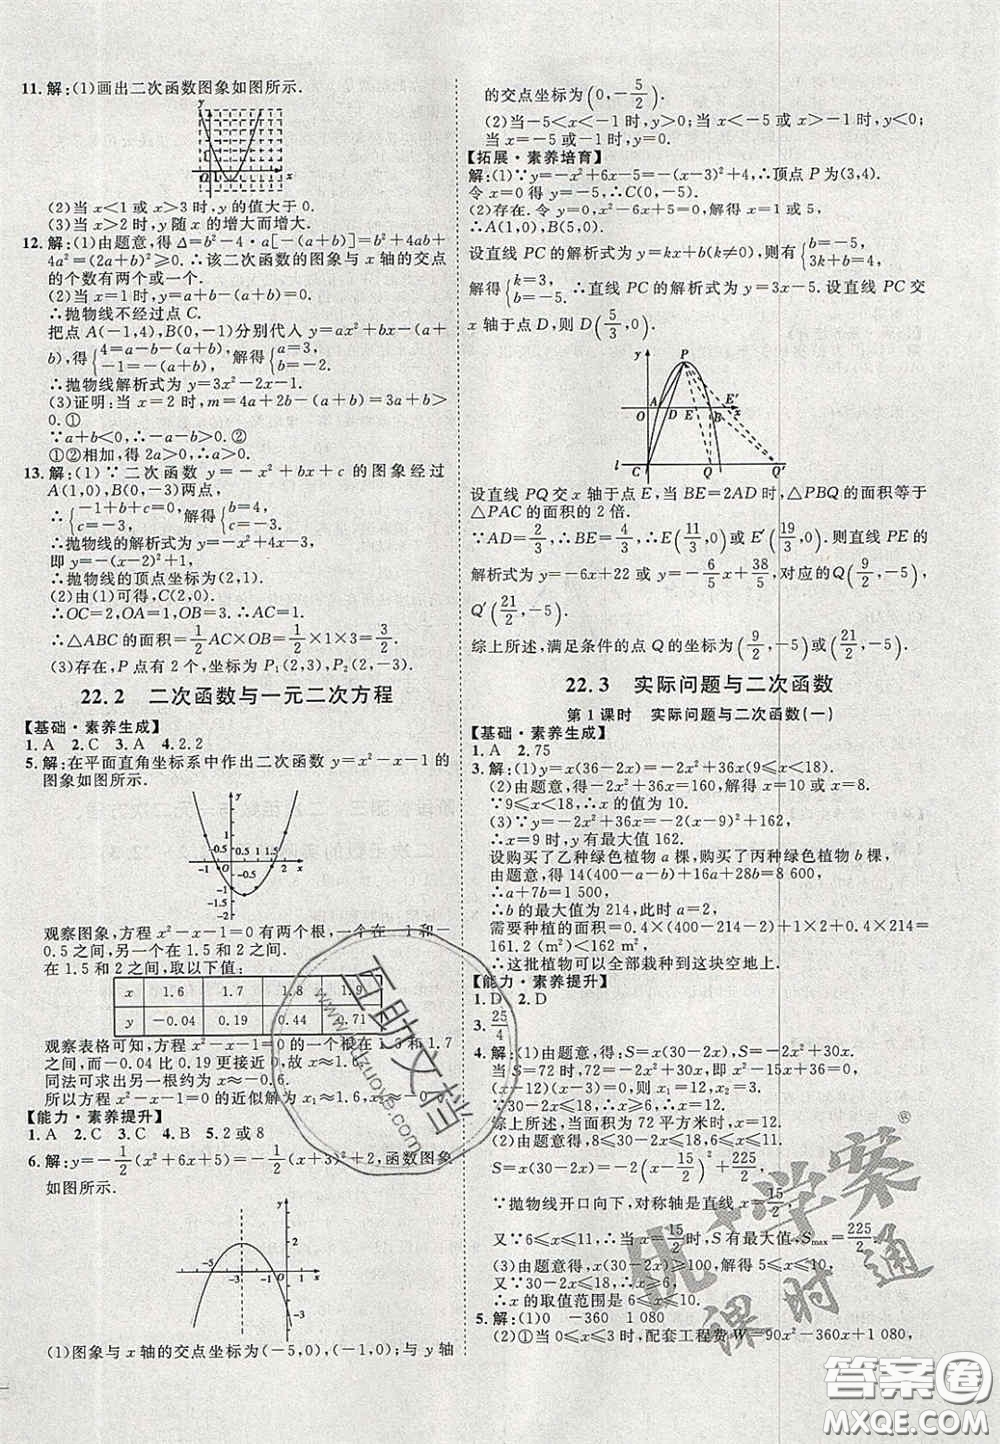 11.解:(1)画出二次函数图象如图所示.
y
O 1 x
(2)当 x<1 或 x>3 时,y 的值大于 0.
(3)当 x>2 时,y 随 x 的增大而增大.
12.解:(1)由题意,得 Δ=b²-4·a[-(a+b)]=b²+4ab+
4a²=(2a+b)²≥0.∴该二次函数的图象与 x 轴的交点
的个数有两个或一个.
(2)当 x=1 时,y=a+b-(a+b)=0,
∴抛物线不经过点 C.
把点 A(-1,4),B(0,-1)分别代入 y=ax²+bx-(a+
b),得{4=a-b-(a+b), -1=-(a+b), 解得{a=3, b=-2.
∴抛物线解析式为 y=3x²-2x-1.
(3)证明:当 x=2 时,m=4a+2b-(a+b)=3a+b>
0.①
∵a+b<0,∴-a-b>0.②
①②相加,得 2a>0,∴a>0.
13.解:(1)∵二次函数 y=-x²+bx+c 的图象经过
A(1,0),B(0,-3)两点,
∴{-1+b+c=0, c=-3, 解得{b=4, c=-3.
∴抛物线的解析式为 y=-x²+4x-3.
即 y=-(x-2)²+1.
∴抛物线的顶点坐标为(2,1).
(2)由(1)可得,C(2,0).
∴OC=2,OA=1,OB=3,∴AC=1.
∴△ABC 的面积=1/2 AC×OB=1/2×1×3=3/2.
(3)存在,P 点有 2 个,坐标为 P₁(2,3),P₂(2,-3).
22.2 二次函数与一元二次方程
【基础·素养生成】
1.A 2.C 3.A 4.2.2
5.解:在平面直角坐标系中作出二次函数 y=x²-x-1 的
图象如图所示.
y
1
-1 -0.5 O 0.5 1 1.5 2 x
-1
-2
观察图象,方程 x²-x-1=0 有两个根,一个在-1 和-
0.5 之间,另一个在 1.5 和 2 之间.
在 1.5 和 2 之间,取以下值:
x 1.6 1.7 1.8 1.9
y -0.04 0.19 0.44 0.71
观察表格可知,方程 x²-x-1=0 的一个根在 1.6 和 1.7
之间,而-0.04 比 0.19 更接近 0,故 x≈1.6.
同法可求出另一根约为 x≈-0.6.
所以方程 x²-x-1=0 的近似解为 x₁≈1.6,x₂≈-0.6.
【能力·素养提升】
1.A 2.C 3.C 4.B 5.2 或 8
6.解:y=-1/2(x²+6x+5)=-1/2(x+3)²+2,函数图象
如图所示.
y
2
-3 O x
-3
(1)图象与 x 轴的交点坐标为(-5,0),(-1,0);与 y 轴
的交点坐标为(0,-5/2).
(2)当-5<x<-1 时,y>0;当 x<-5 或 x>-1 时,
y<0;当 x=-5 或-1 时,y=0.
【拓展·素养培育】
解:(1)∵y=-x²+6x-5=-(x-3)²+4,∴顶点 P 为(3,4).
令 x=0 得 y=-5,∴C(0,-5).
(2)存在.令 y=0,-x²+6x-5=0,解得 x=1 或 5,
∴A(1,0),B(5,0).
设直线 PC 的解析式为 y=kx+b(k≠0),则有{b=-5, 3k+b=4,
解得{k=3, b=-5. ∴直线 PC 的解析式为 y=3x-5.设直线 PC
交 x 轴于点 D,则 D(5/3,0).
y P
O A D E B E′ x
l C Q Q′
设直线 PQ 交 x 轴于点 E,当 BE=2AD 时,△PBQ 的面积等于
△PAC 的面积的 2 倍.
∵AD=2/3,∴BE=4/3,∴E(11/3,0)或 E′(19/3,0).则直线 PE 的
解析式为 y=-6x+22 或 y=-6/5x+38/5,对应的 Q(9/2,-5),
Q′(21/2,-5).
综上所述,满足条件的点 Q 的坐标为(9/2,-5)或(21/2,-5).
22.3 实际问题与二次函数
第 1 课时 实际问题与二次函数(一)
【基础·素养生成】
1.A 2.75
3.解:(1)y=x(36-2x)=-2x²+36x(9≤x<18).
(2)由题意,得-2x²+36x=160,解得 x=10 或 x=8.
∵9≤x<18,∴x 的值为 10.
(3)∵y=-2x²+36x=-2(x-9)²+162,
∴x=9 时,y 有最大值 162.
设购买了乙种绿色植物 a 棵,购买了丙种绿色植物 b 棵,
由题意,得 14(400-a-b)+16a+28b=8 600,
∴a+7b=1 500,
∴b 的最大值为 214,此时 a=2,
需要种植的面积=0.4×(400-214-2)+1×2+0.4×214=
161.2 (m²)<162 m²,
∴这批植物可以全部栽种到这块空地上.
【能力·素养提升】
1.D 2.D
3.25/4
4.解:(1)由题意,得:S=x(30-2x),即 S=-2x²+30x.
当 S=72 时,72=-2x²+30x,即 x²-15x+36=0,
(x-12)(x-3)=0,解得:x₁=12,x₂=3,
∵30-2x≤18,∴x≥6,∴x=12.
综上所述,当面积为 72 平方米时,x=12 米.
(2)由题意得:8≤30-2x≤18,解得:6≤x≤11,
S=x(30-2x)=-2(x-15/2)²+225/2,
∵抛物线开口向下,对称轴是直线 x=15/2,
又∵6≤x≤11,∴当 x=15/2 时,S 有最大值,Smax=225/2
(3)由题意得,x(30-2x)≥100,解得:5≤x≤10,
又∵30-2x≤18,∴x≥6,∴6≤x≤10,
∴x 的取值范围是 6≤x≤10.
5.解:(1)0 -360 1 080
(2)①当 0≤x≤3 时,配套工程费 W=90x²-360x+1 080,
互助文档
www.huzuoye.com
优+学案
课时通
®
答案圈
MXQE.COM